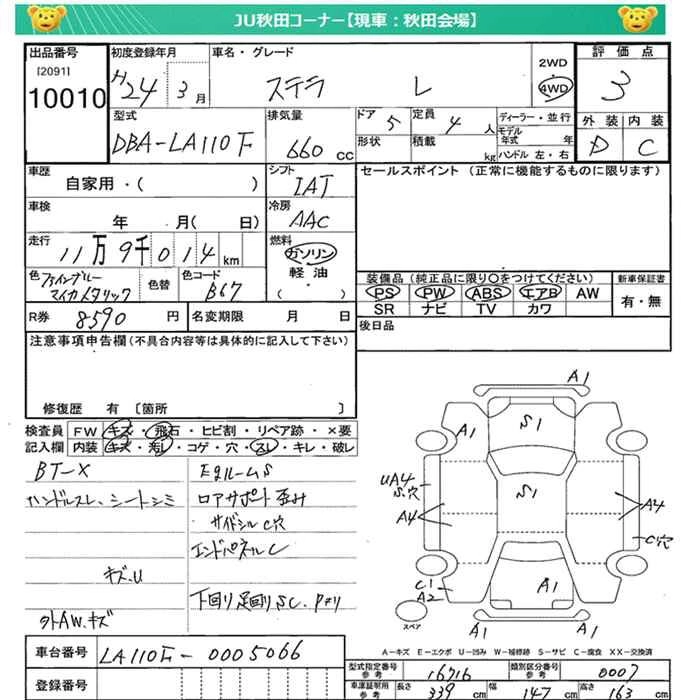 JU秋田コーナー【現車：秋田会場】
出品番号 [2091] 10010
初度登録年月 H24 3月
車名・グレード ステラ L
2WD 4WD
評価点 3
型式 DBA-LA110F
排気量 660 cc
ドア 5 定員 4 人
形状 積載 kg
ディーラー・並行
モデル年式 年
ハンドル 左・右
外装 内装
D C
車歴 自家用・( )
シフト IAT
セールスポイント (正常に機能するものに限ります)
車検 年 月( 日)
冷房 AAC
走行 11万9千014 km
燃料 ガソリン 軽油 ( ・ )
色 ファインブルーマイカメタリック 色替 色コード B67
装備品 (純正品に限り○をつけてください) 新車保証書
PS PW ABS エアB AW 有・無
SR ナビ TV カワ
R券 8590 円 名変期限 月 日
後日品
注意事項申告欄 (不具合内容等は具体的に記入して下さい)
修復歴 有 [箇所 ]
検査員 FW キズ・飛石・ヒビ割・リペア跡・×要
記入欄 内装 コゲ・穴・スレ・キレ・破レ
BT-X
ハンドルスレ、シートシミ
キズ.U
外AW.キズ
EgルームS
ロアサポート歪み
サイドシルC穴
エンドパネルC
下回り足回りSC.
A1
S1
A1
UA4
S.穴
S1
A4
A4
C穴
C1
A2
A1
A1
A1
スペア
A-キズ E-エクボ U-凹み W-補修跡 S-サビ C-腐食 XX-交換済
車台番号 LA110F-0005066
登録番号
型式指定番号 参考 16716 類別区分番号 参考 0007
車庫証明用 参考 長さ 339 cm 幅 147 cm 高さ 163 cm